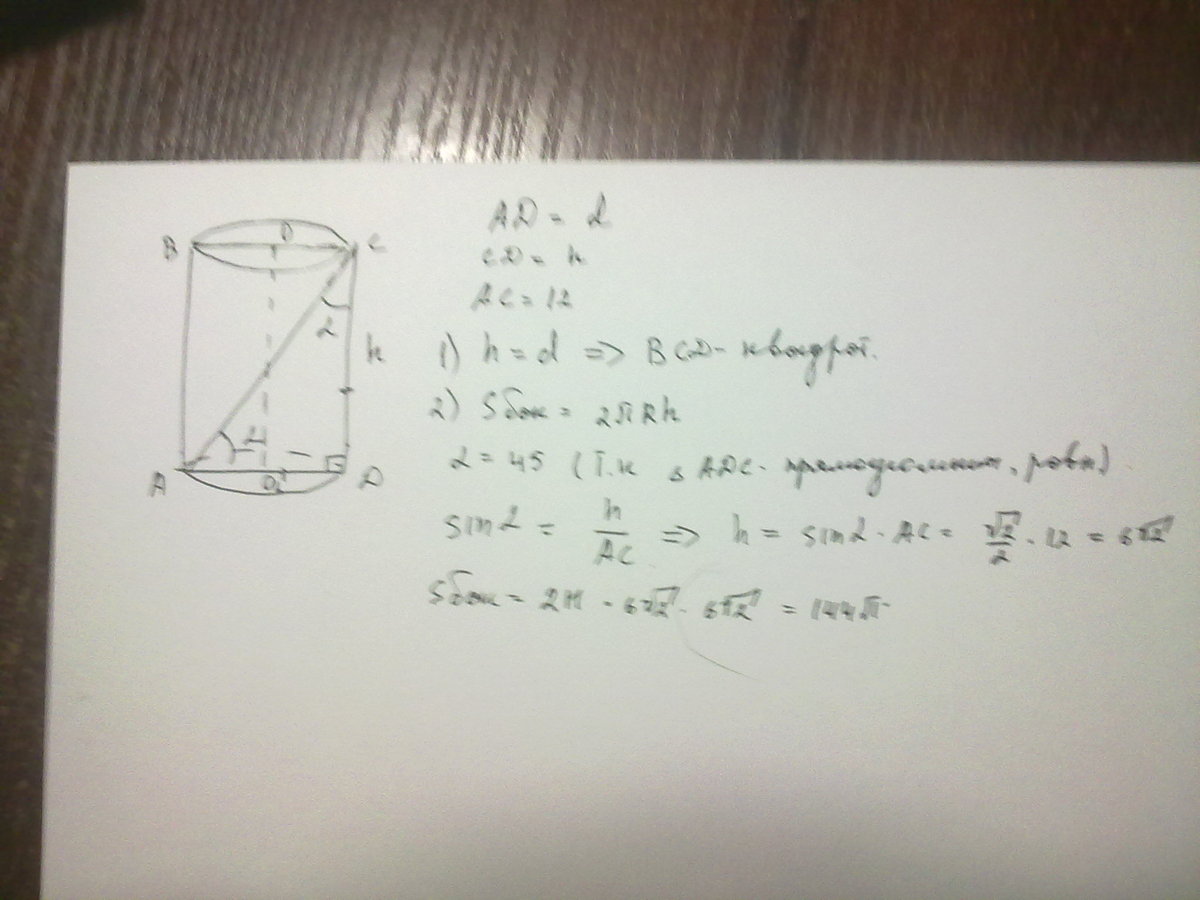 B O C
α
h
α
A O₁ D
AD = d
CD = h
AC = 12
1) h = d => BCD - квадрат.
2) Sбок = 2πRh
α = 45 (т.к Δ ADC - прямоугольник, равн)
sin α = h/AC => h = sin α · AC = √2/2 · 12 = 6√2
Sбок = 2π · 6√2 · 6√2 = 144π